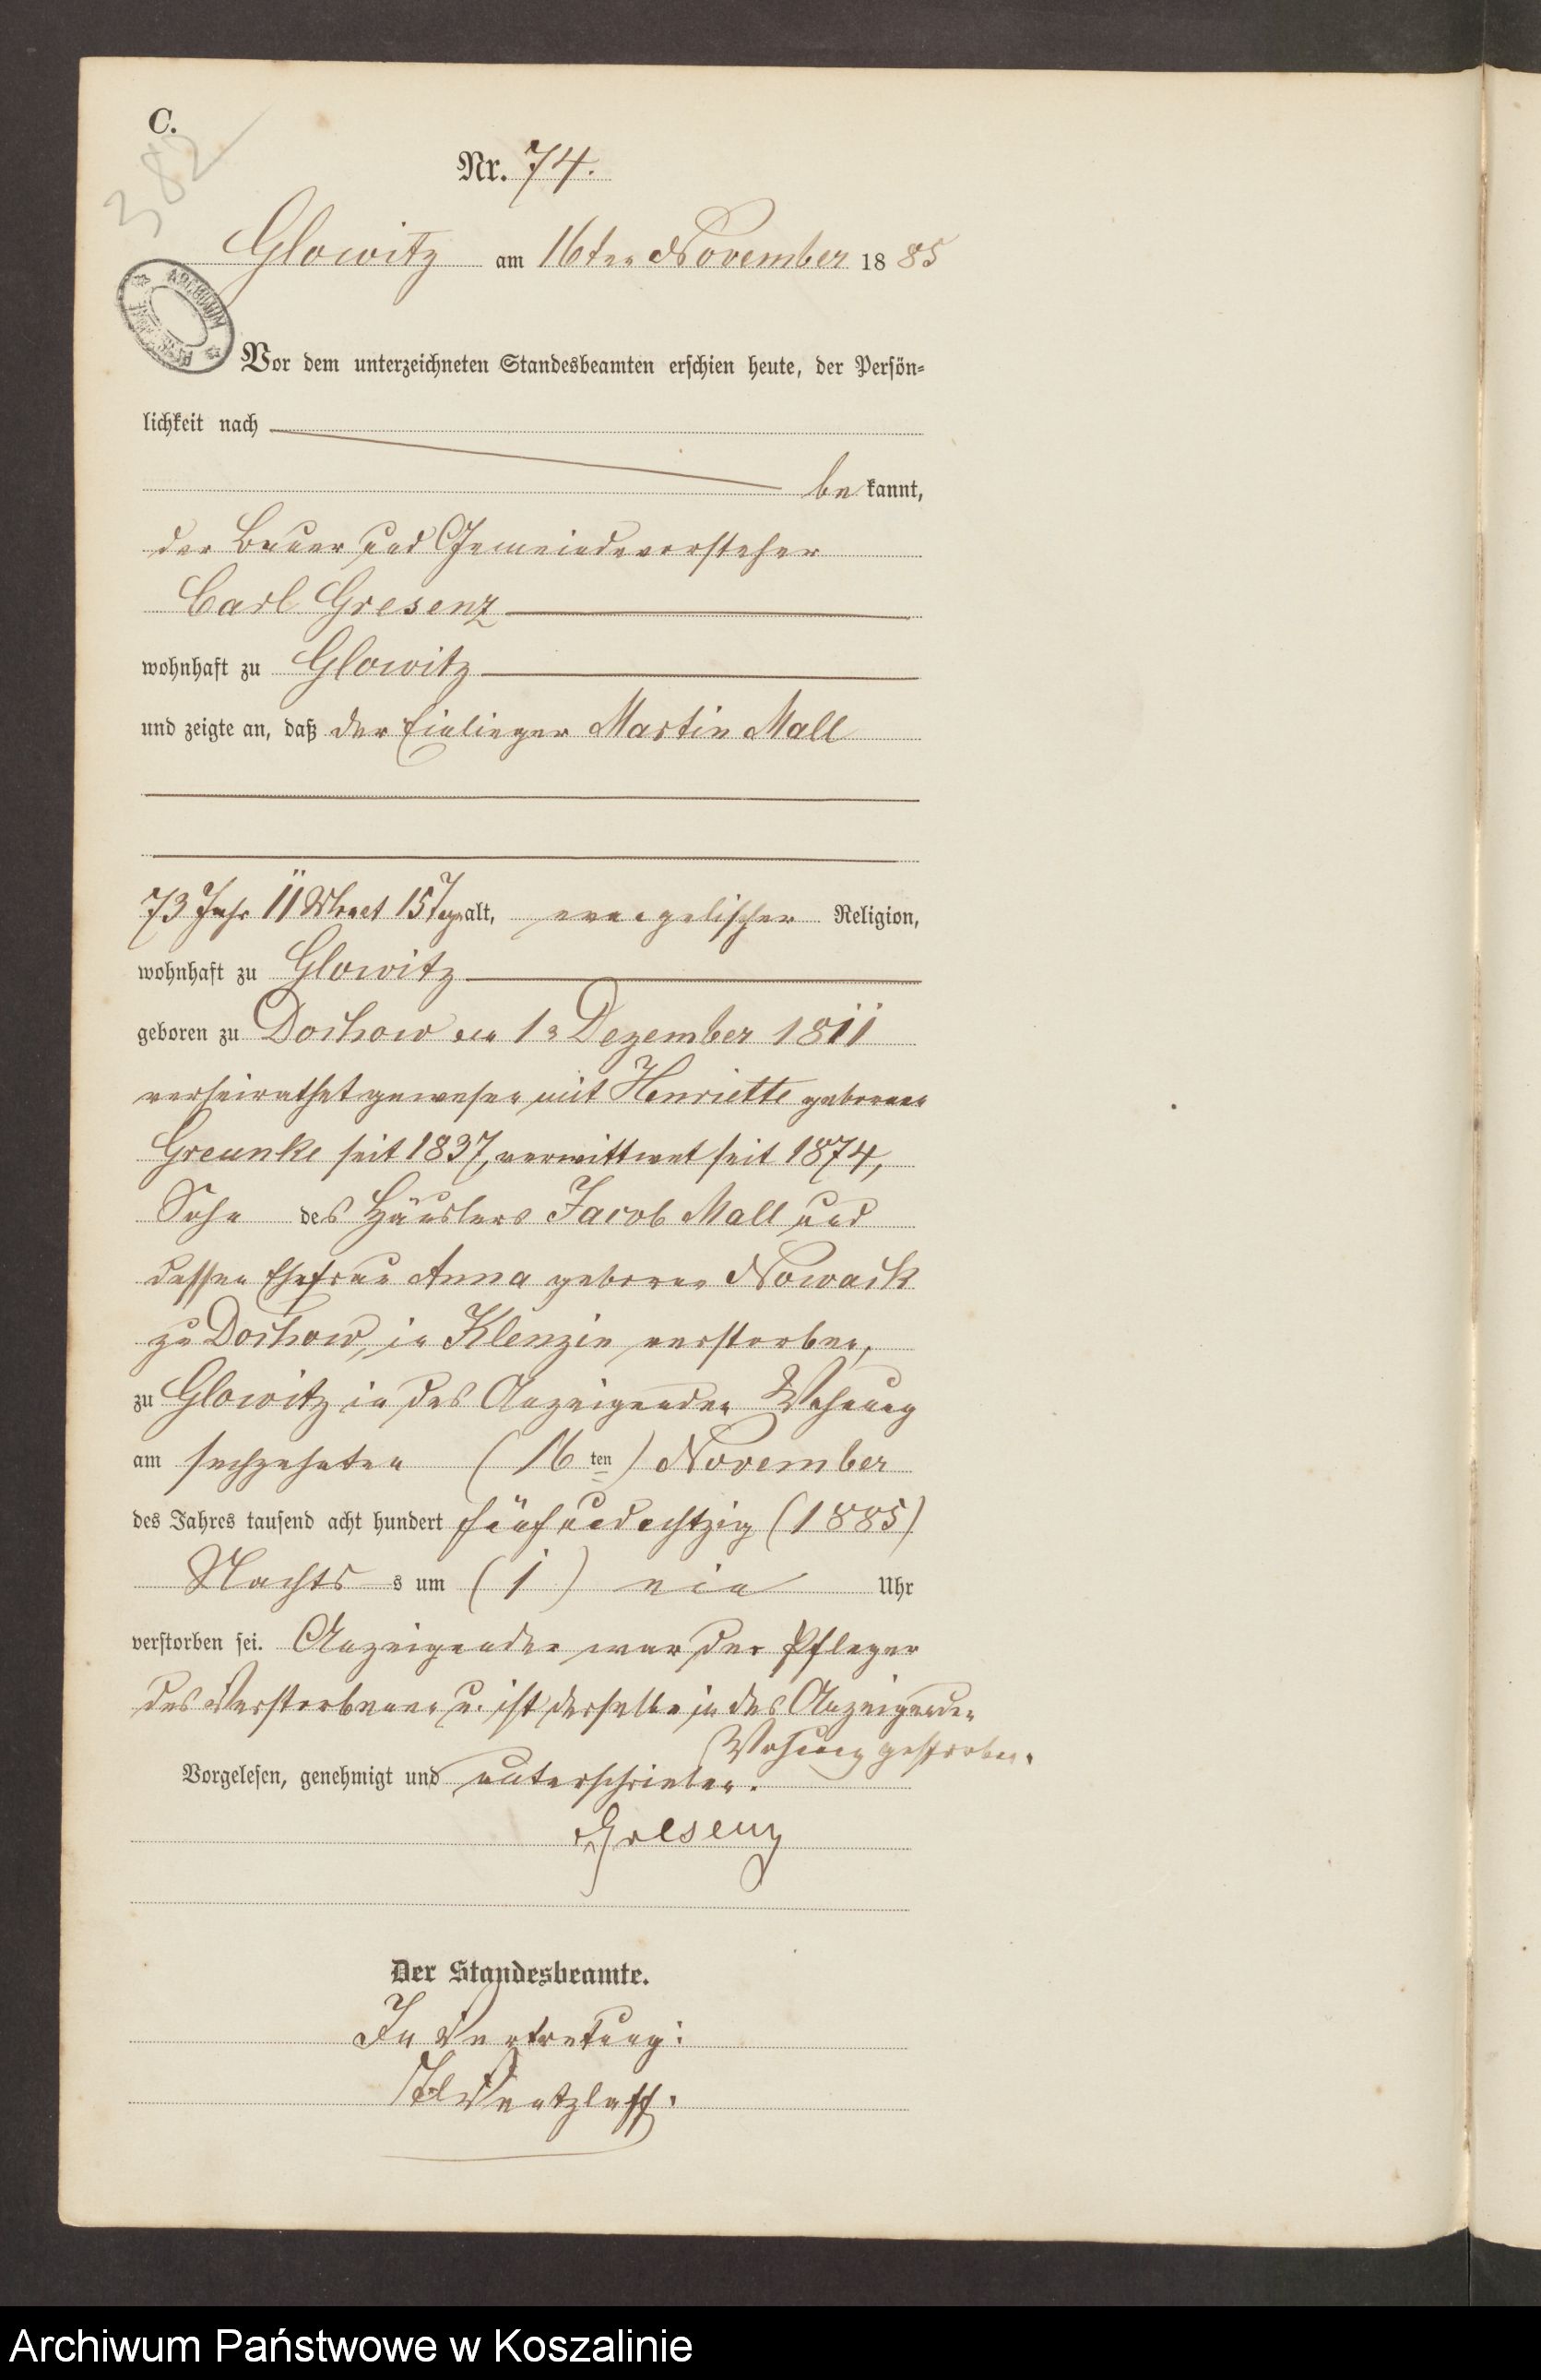 C.
382
Nr. 74.
Glowitz am 16ten November 1885
Vor dem unterzeichneten Standesbeamten erschien heute, der Persön-
lichkeit nach
be kannt,
der Bauer und Gemeindevorsteher
Carl Gresenz
wohnhaft zu Glowitz
und zeigte an, daß der Einlieger Martin Mall
73 Jahr 11 Monat 15 Tage alt, evangelischer Religion,
wohnhaft zu Glowitz
geboren zu Dochow am 1. Dezember 1811
verheirathet gewesen mit Henriette geborenen
Greunke seit 1837, verwittwet seit 1874,
Sohn des Häuslers Jacob Mall und
dessen Ehefrau Anna geborne Nowack
zu Dochow, in Klenzin verstorben,
zu Glowitz in des Anzeigenden Wohnung
am sechzehnten (16 ten) November
des Jahres tausend acht hundert fünfundachtzig (1885)
Nachts s um (1) ein Uhr
verstorben sei. Anzeigender war der Pfleger
des Verstorbenen u. ist derselbe in des Anzeigenden
Wohnung gestorben.
Vorgelesen, genehmigt und unterschrieben.
Gresenz
Der Standesbeamte.
In Vertretung:
Ventzlaff.
Archiwum Państwowe w Koszalinie